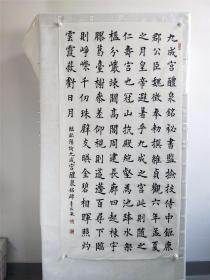 九成宮醴泉銘祕書監撿挍侍中鉅鹿
郡公臣魏徵奉勑撰維貞觀六年孟夏
之月皇帝避暑乎九成之宮此則隨之
仁壽宮也冠山抗殿絕壑為池跨水架
楹分巖竦闕高閣周建長廊四起棟宇
膠葛臺榭參差仰視則迢遰百尋下臨
則崢嶸千仞珠璧交暎金碧相暉照灼
雲霞蔽虧日月 臨歐陽詢九成宮醴泉銘